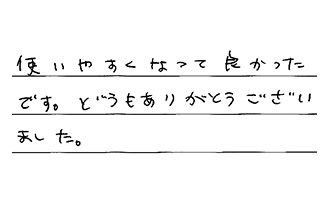 使いやすくなって良かった
です。どうもありがとうござい
ました。